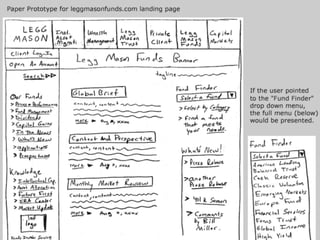 Paper Prototype for leggmasonfunds.com landing page
LEGG MASON
Inst. Asset Mgmt
Wealth Management
Legg Mason Trust
Private Client
Legg Mason Funds
Capital Markets
Client Log In
Open An Account
Search
Legg Mason Funds Banner
tagline
Our Funds
Price & Performance
Fund Management
Dividends
Capital Gains
In the News
What's New
Applications
Prospectuses
Knowledge
Intellectual Cap.
Asset Allocation
Future First
IRA Center
Market Update
Global Brief
content, content
content, content
more Aug 2, 2002
Content and Perspective
content, content
content, content
more Aug 2, 2002
Monthly Market Review
content, content
more Aug 2, 2002
Fund Finder
Select a Fund
Select by Category
Find a fund
that meets
your needs
What's New!
Press Release
Another
Press Release
Bill & Susan
Comments
by Bill
Miller.
If the user pointed
to the "Fund Finder"
drop down menu,
the full menu (below)
would be presented.
Fund Finder
Select a Fund
American Leading
Balanced Trust
Cash Reserve
Classic Valuation
Emerging Markets
Europe Fund
Financial Services
Focus Trust
Global Income
High Yield